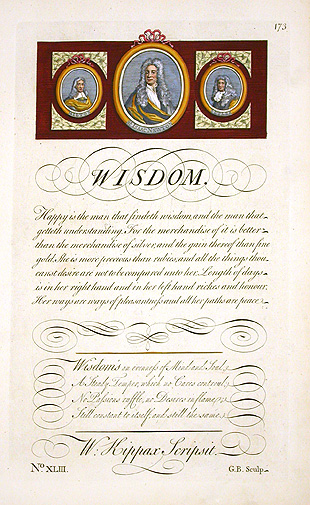 173
WISDOM.
Happy is the man that findeth wisdom, and the man that
getteth understanding. For the merchandise of it is better
than the merchandise of silver, and the gain thereof than fine
gold. She is more precious than rubies, and all the things thou
canst desire are not to be compared unto her. Length of days
is in her right hand and in her left hand riches and honour.
Her ways are ways of pleasantness and all her paths are peace.
Wisdom's an evenness of Mind and Soul,
A Steady Temper, which no Cares controul;
No Passions ruffle, no Desires enflame,
Still constant to itself, and still the same.
W. Hippax Scripsit.
No. XLIII.
G.B. Sculp.